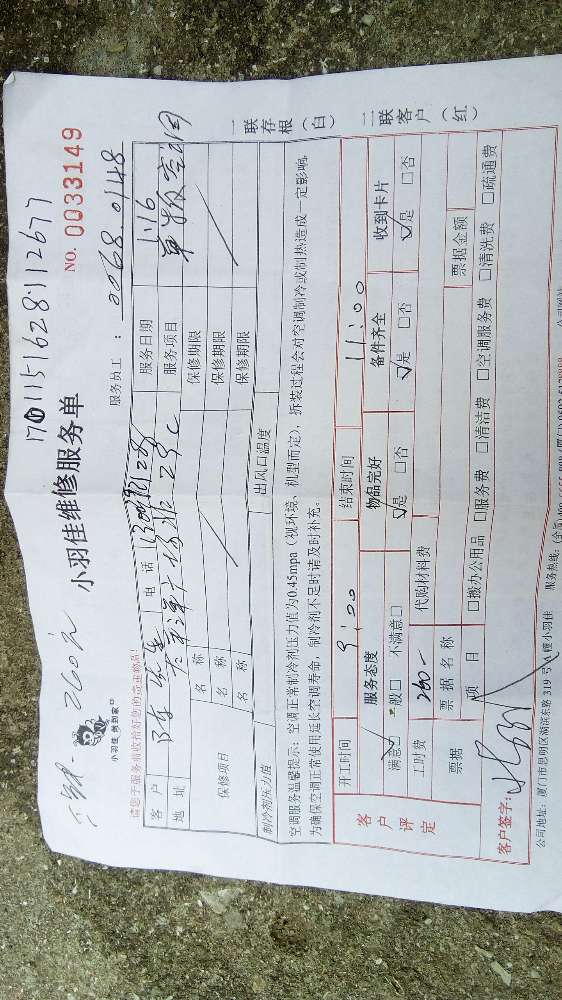 1701151628112677
260元
小羽佳维修服务单
NO. 0033149
小羽佳 倍到家
服务员工： 0068.0148
请您于服务前收拾好您的贵重物品！
客户 陈先生 电话 服务日期 1.16
地址 服务项目
保修项目 名称 保修期限
名称 保修期限
名称 保修期限
制冷剂压力值 出风口温度
空调服务温馨提示：空调正常制冷剂压力值为0.45mpa（视环境、机型而定），拆装过程会对空调制冷或制热造成一定影响，
为确保空调正常使用延长空调寿命，制冷剂不足时请及时补充。
一联存根（白） 二联客户（红）
客户评定
开工时间 9:00 结束时间 11:00
服务态度 物品完好 备件齐全 收到卡片
满意□ 一般□ 不满意□ ☑是 □否 ☑是 □否 ☑是 □否
工时费 260- 代购材料费
票据 票据名称 票据金额
项目 □搬办公用品 □服务费 □清洁费 □空调服务费 □清洗费 □疏通费
客户签字：
公司地址：厦门市思明区湖滨东路319号 小羽佳 服务热线：